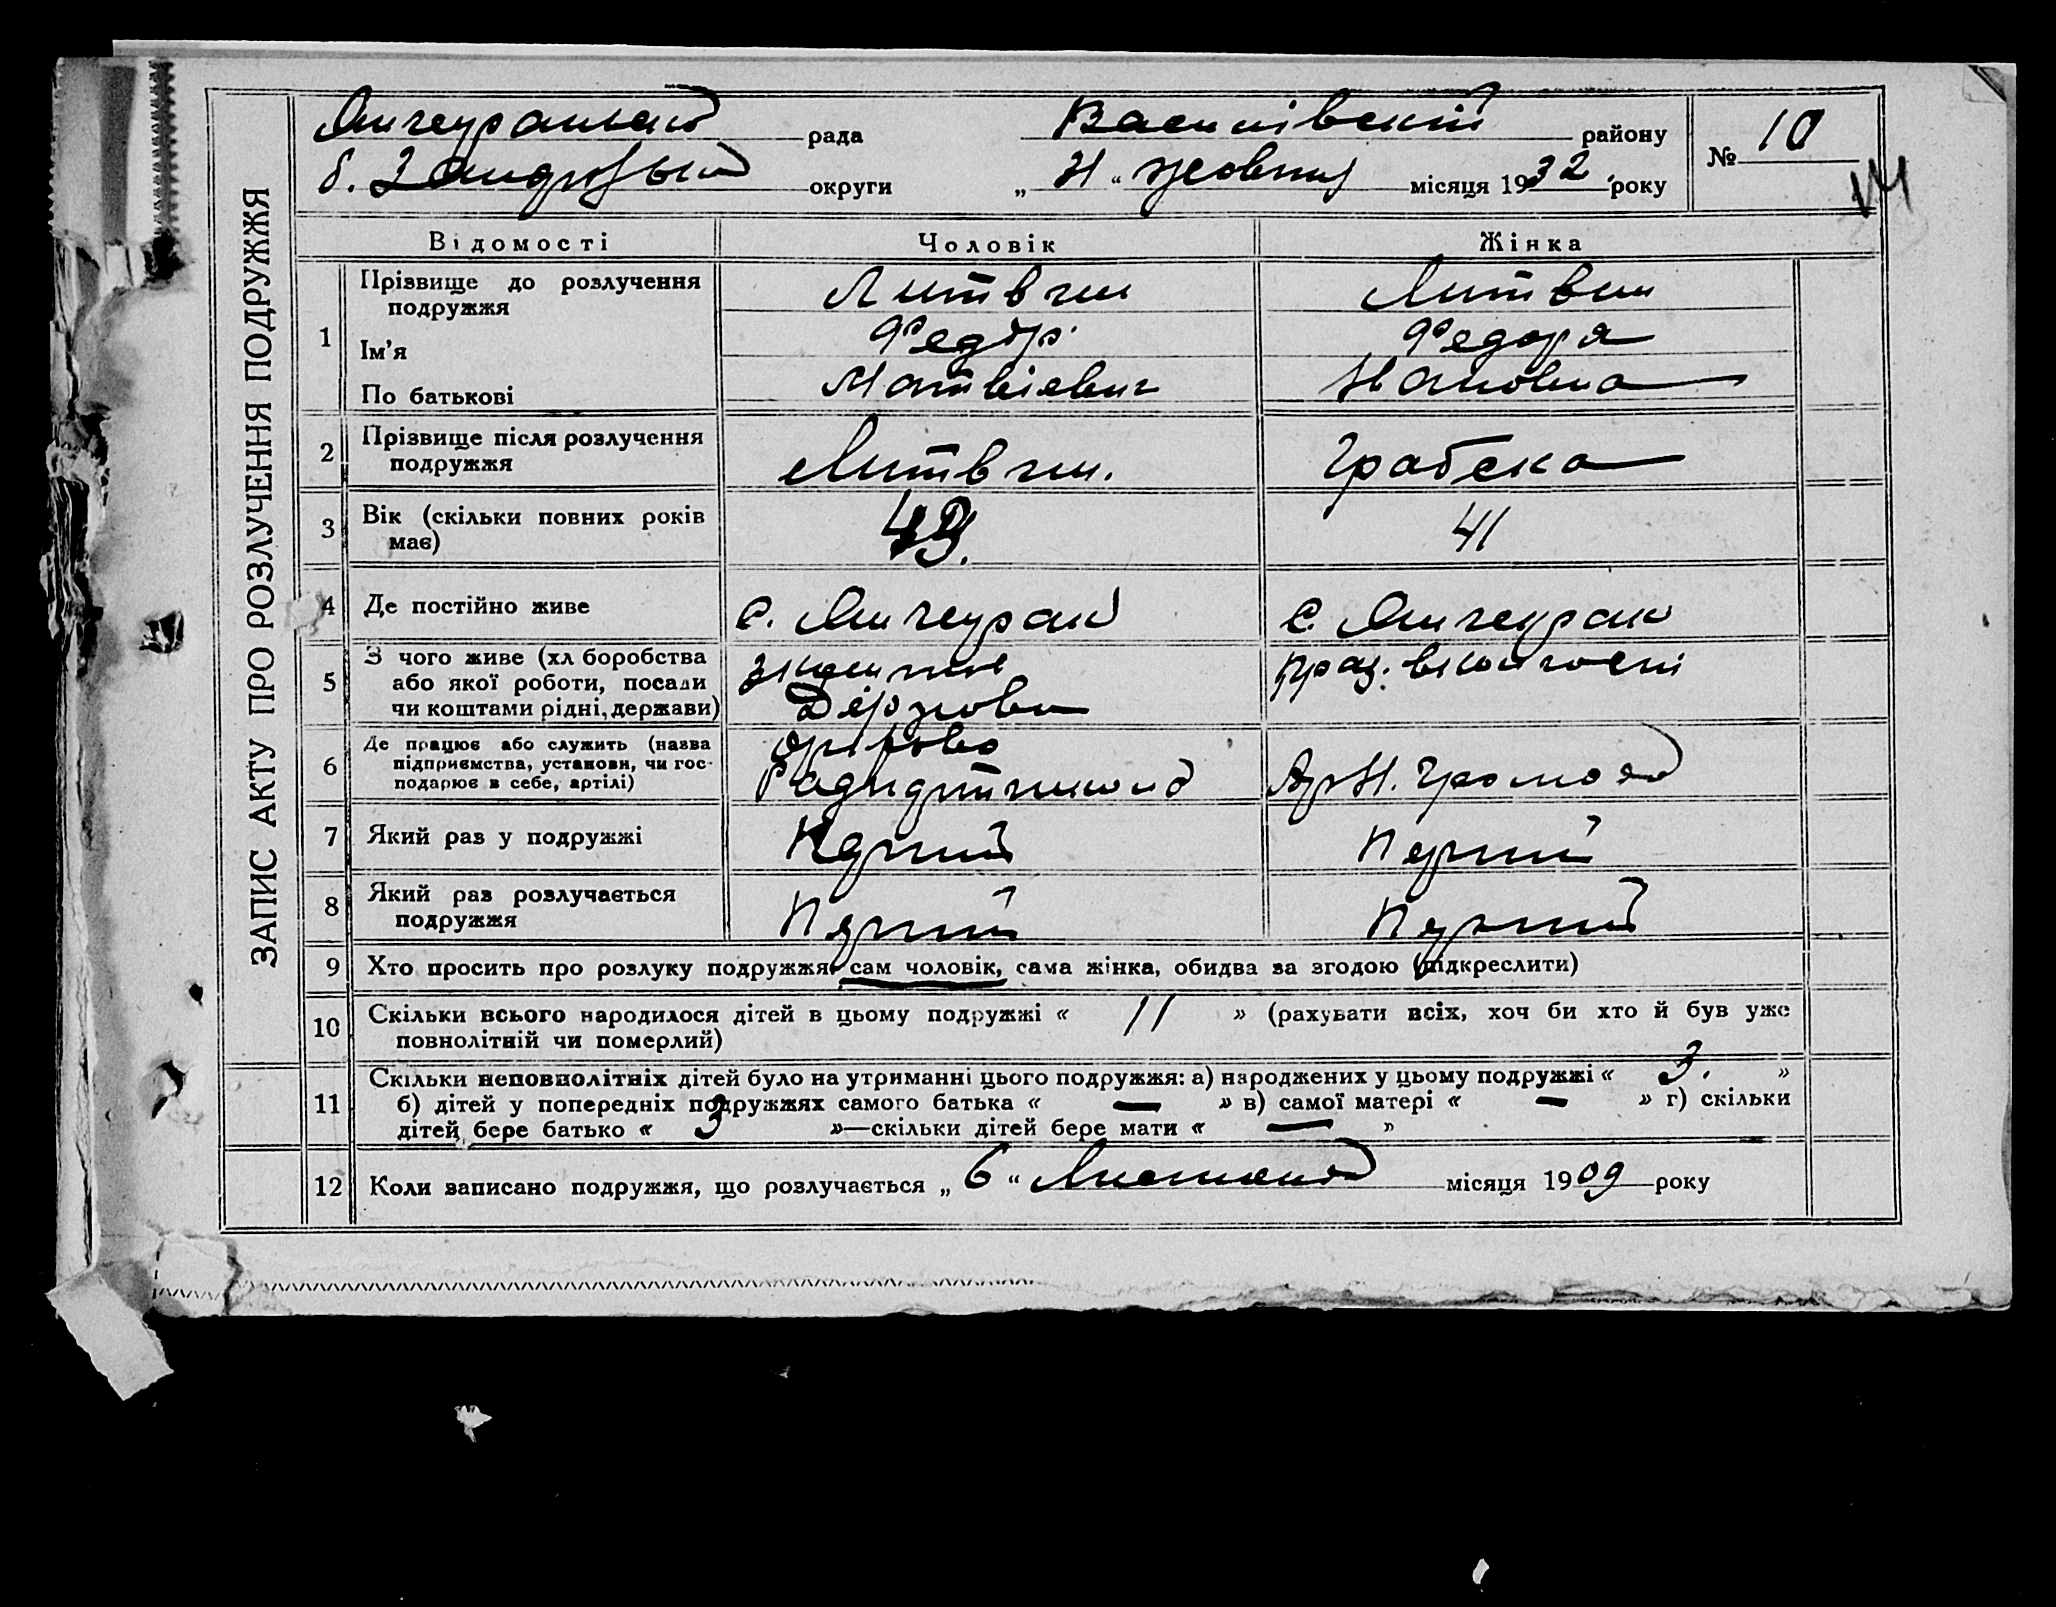 Янчекрацька рада Василівський району № 10
б. Запорізька округи „ 21 “ жовтня місяця 1932 року
ЗАПИС АКТУ ПРО РОЗЛУЧЕННЯ ПОДРУЖЖЯ
Відомості Чоловік Жінка
1 Прізвище до розлучення подружжя Литвин Литвин
Ім'я Федір Федора
По батькові Матвієвич Івановна
2 Прізвище після розлучення подружжя Литвин. Грабска
3 Вік (скільки повних років має) 43. 41
4 Де постійно живе с. Янчекрак с. Янчекрак
5 З чого живе (хл боробства або якої роботи, посади чи коштами рідні, держави) Держави
6 Де працює або служить (назва підприємства, установи, чи господарює в себе, артілі) Громода
7 Який раз у подружжі Перший Перший
8 Який раз розлучається подружжя Перший Перший
9 Хто просить про розлуку подружжя: сам чоловік, сама жінка, обидва за згодою (підкреслити)
10 Скільки всього народилося дітей в цьому подружжі « 11 » (рахувати всіх, хоч би хто й був уже
повнолітній чи померлий)
11 Скільки неповнолітніх дітей було на утриманні цього подружжя: а) народжених у цьому подружжі « 3. »
б) дітей у попередніх подружжях самого батька « — » в) самої матері « — » г) скільки
дітей бере батько « 3 »—скільки дітей бере мати « — »
12 Коли записано подружжя, що розлучається „ 6 “ Листопад місяця 1909 року